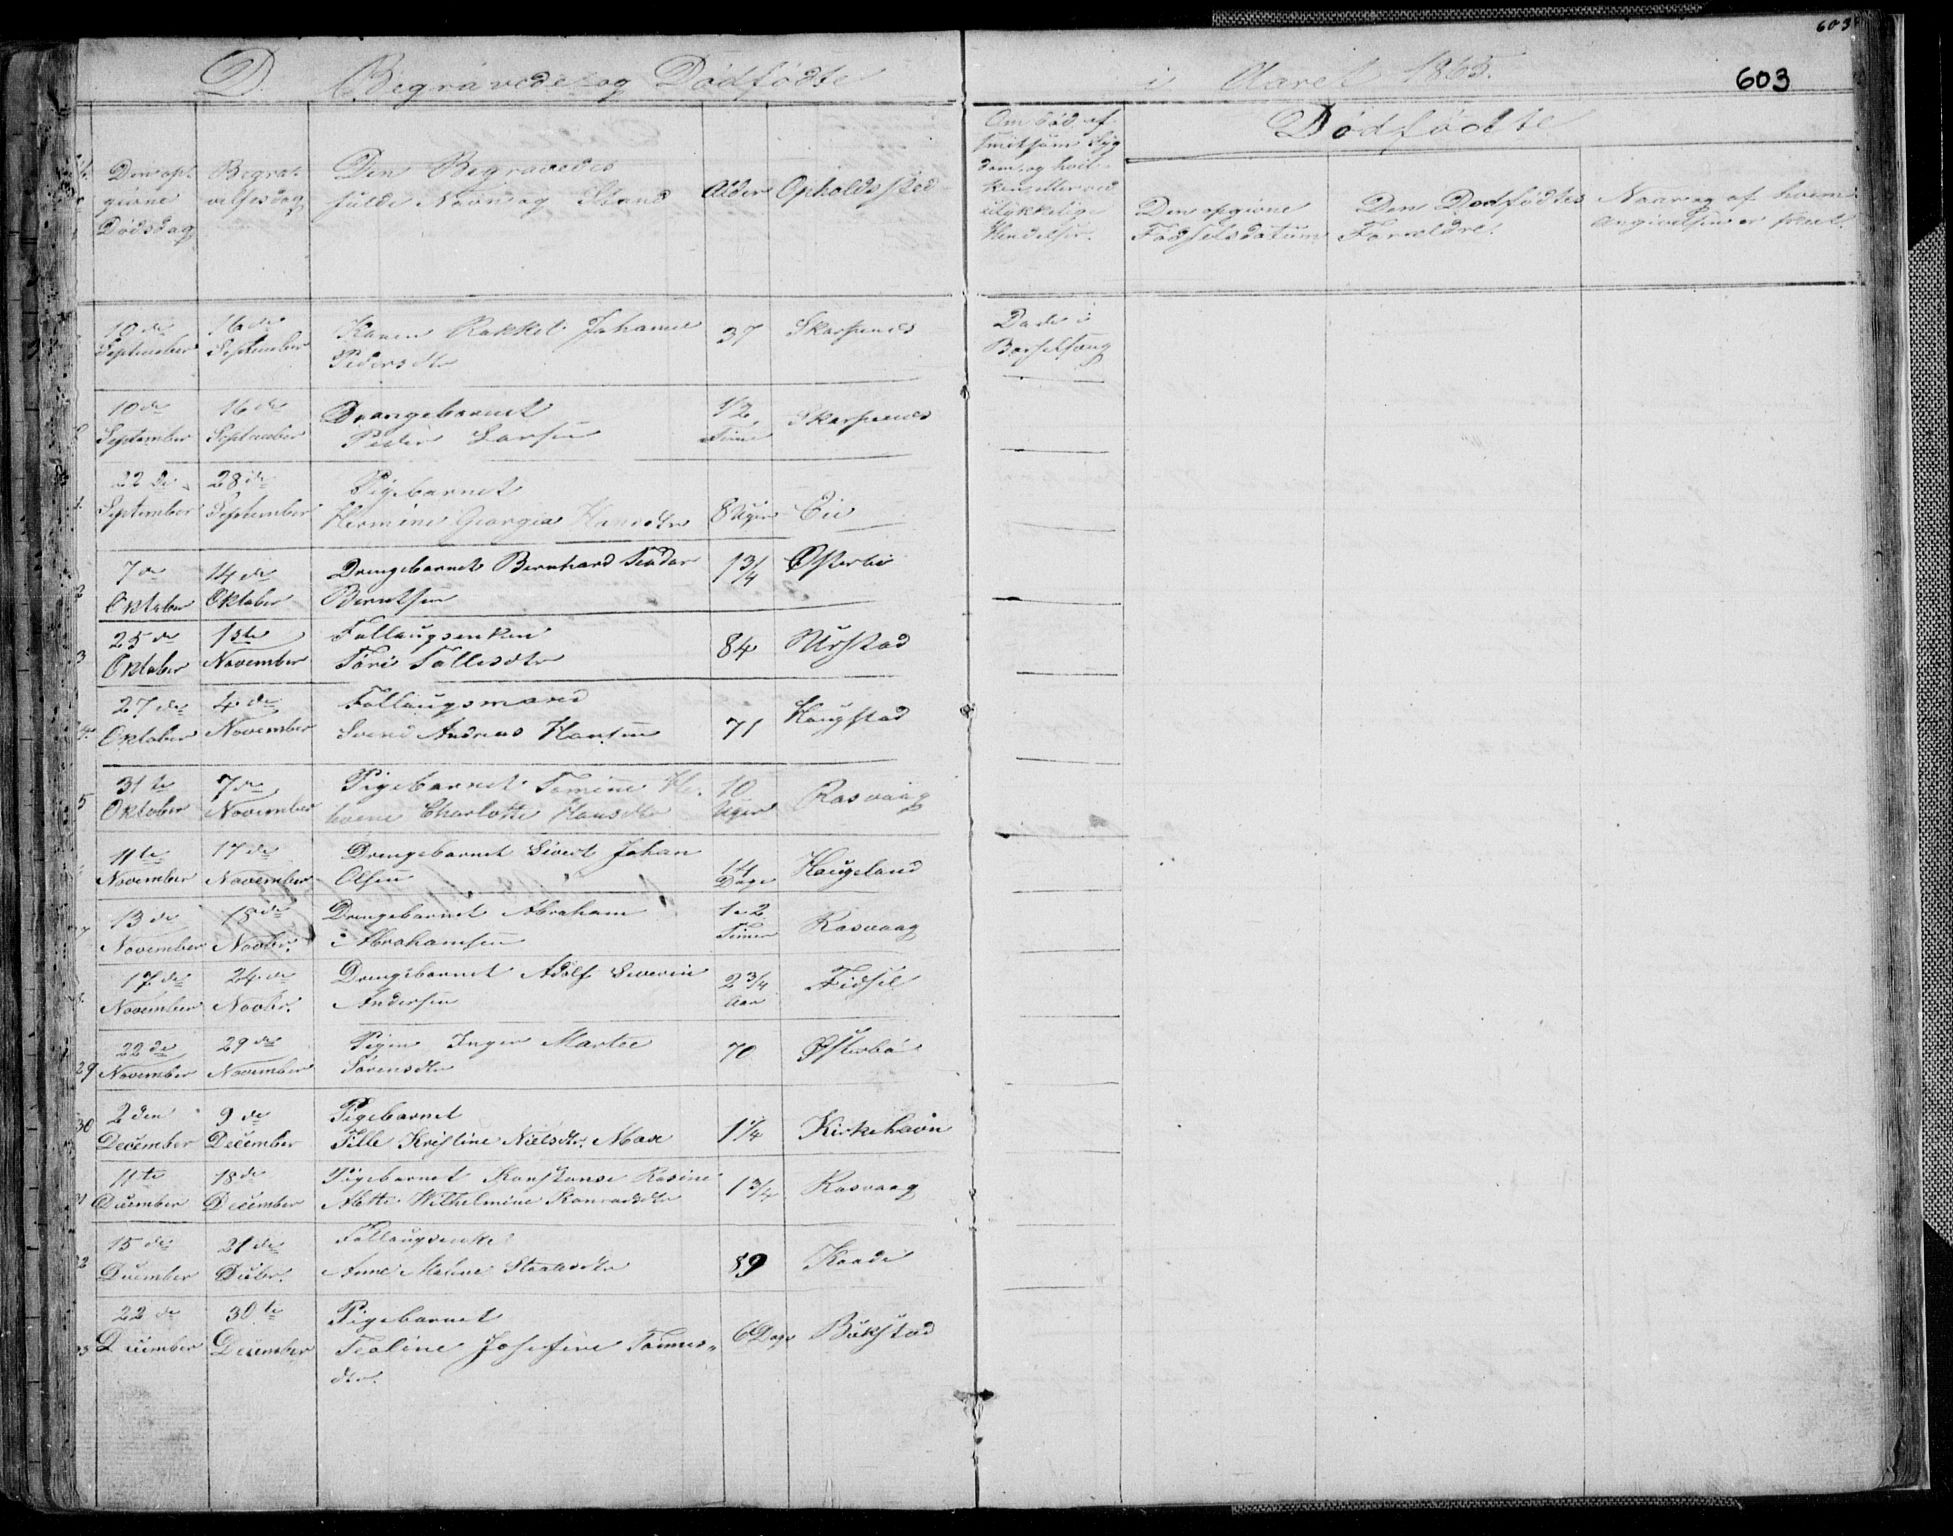 603
603
D. Begravede og Dødfødte i Aaret 1865.
Den opgivne Dødsdag
Begravelsesdag
Den Begravedes fulde Navn og Stand
Alder
Opholdssted
Om død af smitsom Syg
dom, og hvil
ken, eller ved
ulykkelige
Hendelser.
Dødfødte
Den opgivne
Fødselsdatum
Den Dødfødtes
Forældre.
Naar og af hvem
Angivelsen er skeet.
10de September 16de September Karen Rakkel Johanne 37 Skarpenes Døde i
Pedersdtr Barselseng
10de September 16de September Drengebarnet 1/2 Skarpenes
Peder Larsen Time
22de September 28de September Pigebarnet
Hermine Georgia Hansdtr 8 Uger Eie
7de Oktober 14de Oktober Drengebarnet Bernhard Teodor 1 3/4 Østerbø
Berntsen
25de Oktober 1ste November Fattigenken
Tori Tallesdtr 84 Urstad
27de Oktober 4de November
Svend Andreas Hansen 71 Haugstad
5 31te Oktober 7de November Pigebarnet Tomine He- 10 Rasvaag
Charlotte Hansdtr Uger
11te November 17de November Drengebarnet Sivert Johan 14 Haugeland
Olsen Dage
13de November 18de Novbr. Drengebarnet Abraham 1 a 2 Rasvaag
Abrahamsen Timer
17de November 24de Novbr. Drengebarnet Adolf Severin 2 3/4 Fidsel
Andersen Aar
29 22de November 29de November Pigen Inger Martee 70 Østerbø
Sørensdtr
30 2den December 9de December Pigebarnet
Tille Kristine Nielsdtr. Moxe 1 1/4 Kirkehavn
11te December 18de December Pigebarnet Konstanse Rosine
Mette Wilhelmine Konradsdtr 1 3/4 Rasvaag
15de December 21de Decbr.
Anne Malene 89 Kaade
22de December 30te December Pigebarnet
Tealine Josefine Tønnes- 6 Dage Bøkstad
dtr.